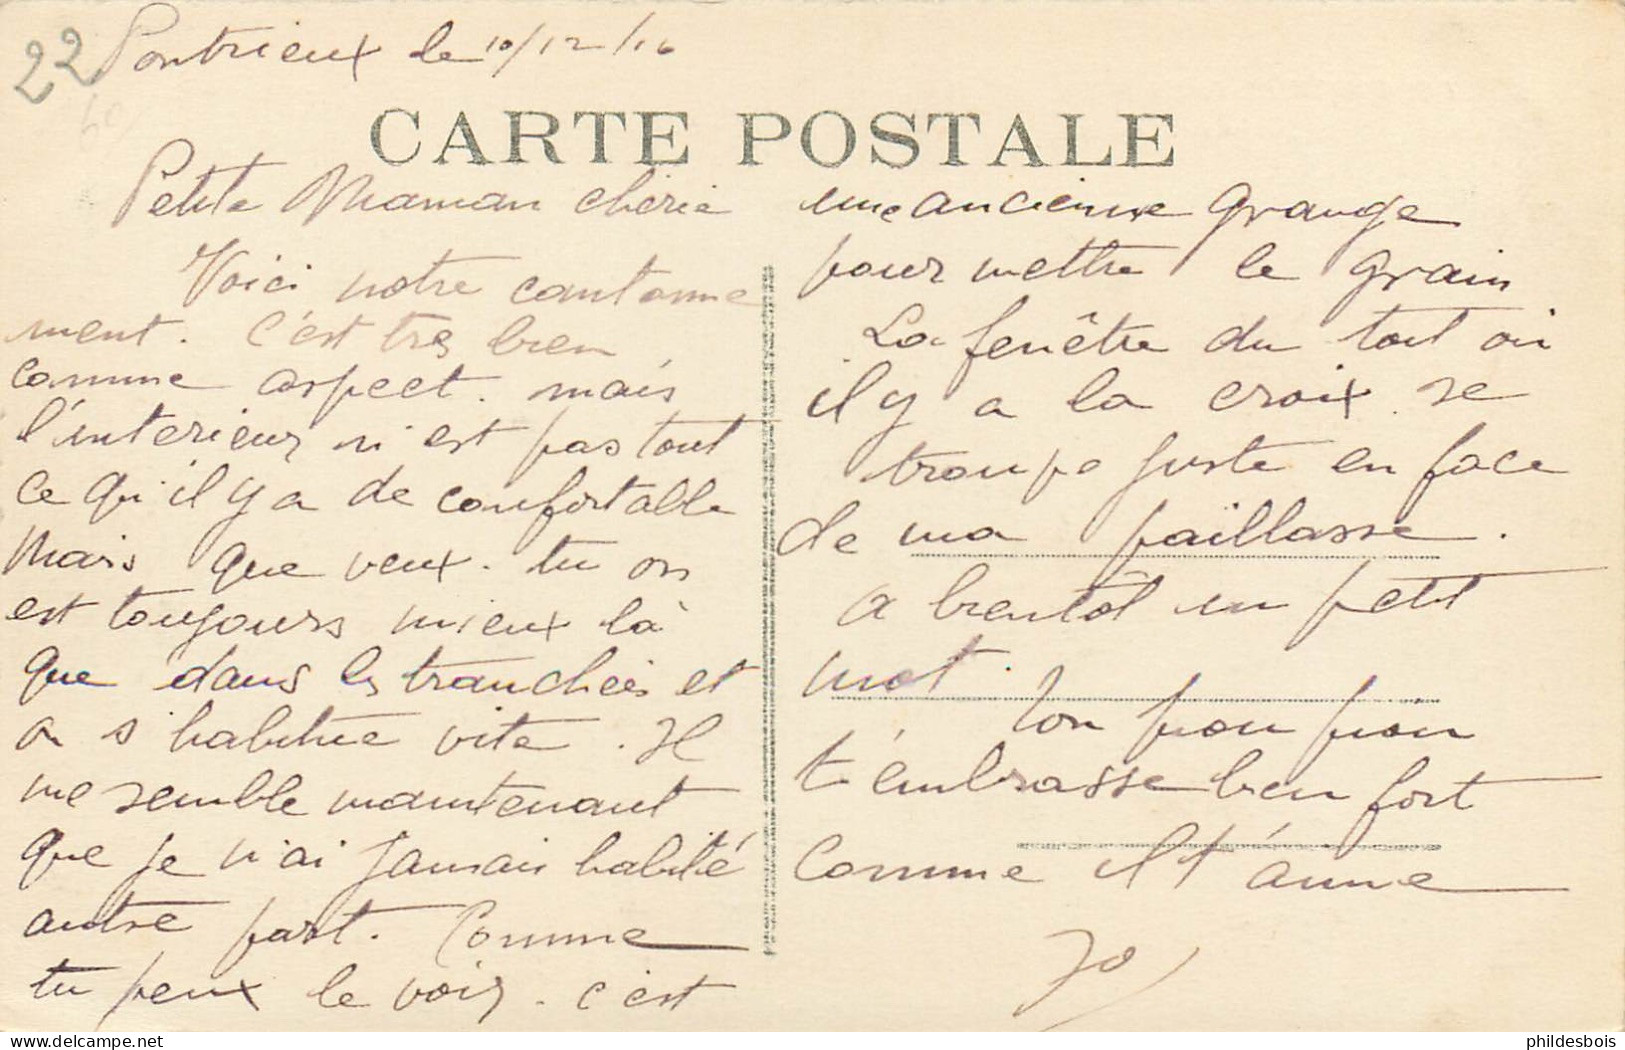 22 Pontrieux le 10/12/16
CARTE POSTALE
Petite Maman chérie
Voici notre cantonne
ment. C'est très bien
comme aspect. mais
l'interieur n'est pas tout
ce qu'il y a de confortable
Mais que veux-tu on
est toujours mieux là
que dans les tranchées et
on s'habitue vite. Il
me semble maintenant
que je n'ai jamais habité
autre part. Comme
tu peux le voir. c'est
une ancienne grange
pour mettre le grain
La fenêtre du toit où
il y a la croix se
trouve juste en face
de ma paillasse.
a bientôt un petit
mot.
Ton piou piou
t'embrasse bien fort
Comme il t'aime
Jo
phildesbois